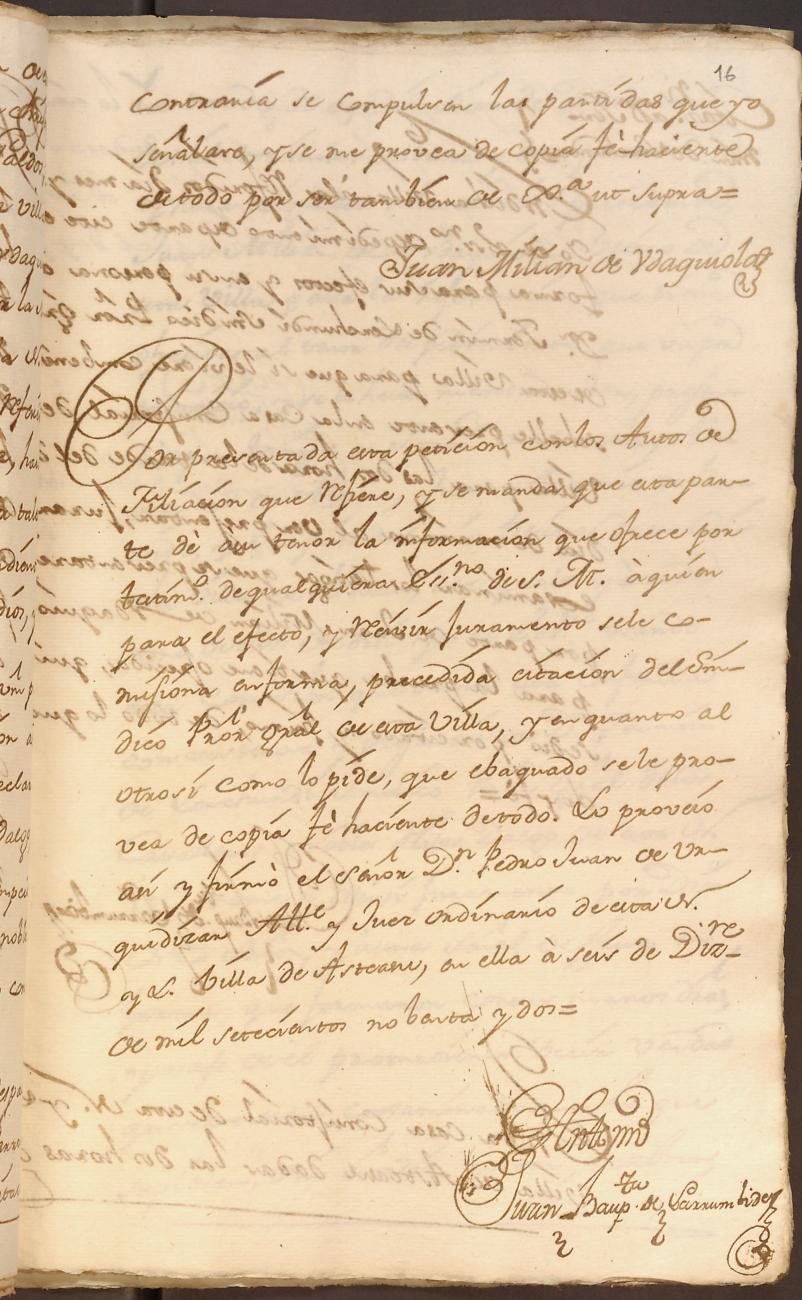 16
Contraria se compulsen las partidas que yo
señalare, y se me provea de copia fè-haciente
de todo por ser tambien de Jus.ª ut supra=
Juan Milian de Ydaquiola
Por presentada esta petición con los Autos de
Filiación que refiere, y se manda que esta par-
te dè a su tenor la información que ofrece por
testim.º de qualquiera Ess.no de S. M. à quien
para el efecto, y recivir Juramento se le co-
misiona en forma, precedida citación del Sin-
dico Pror gral de esta Villa, y en quanto al
otrosi como lo pide, que ebaquado se le pro-
vea de copia fè haciente de todo. Lo proveio
asi y firmò el Señor Dn Pedro Juan de Ur-
quidizar Alle y Juez ordinario de esta N.
y L. Villa de Asteasu, en ella à seis de Dizre
de mil setecientos nobenta y dos=
Antemi
Juan Baupta de Larrumbide